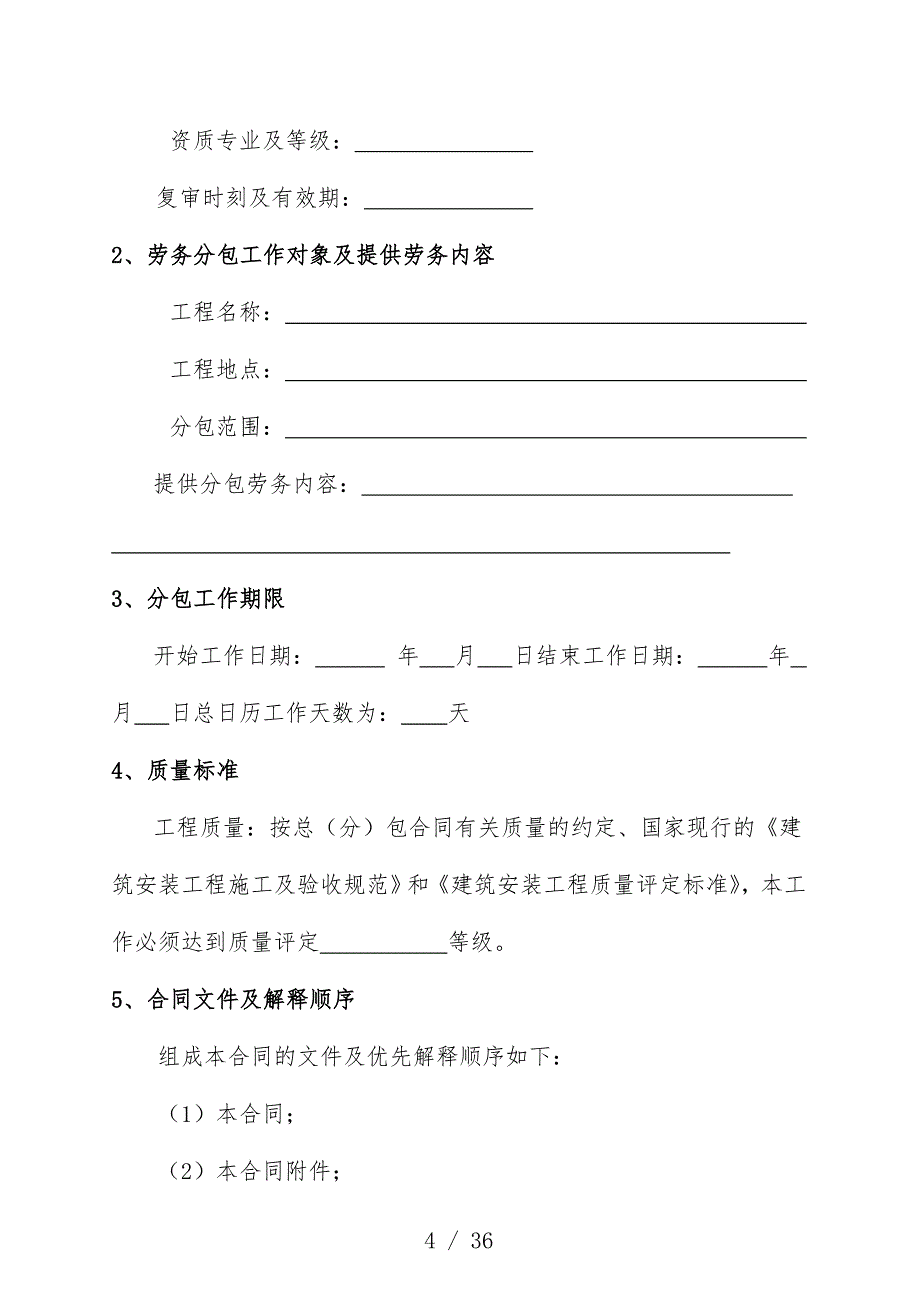 资质专业及等级：_______________
复审时刻及有效期：_______________
2、劳务分包工作对象及提供劳务内容
工程名称：_____________________________________________
工程地点：_____________________________________________
分包范围：_____________________________________________
提供分包劳务内容：_____________________________________
_____________________________________________________
3、分包工作期限
开始工作日期：______ 年___月___日结束工作日期：______年_
月___日总日历工作天数为：____天
4、质量标准
工程质量：按总（分）包合同有关质量的约定、国家现行的《建
筑安装工程施工及验收规范》和《建筑安装工程质量评定标准》，本工
作必须达到质量评定___________等级。
5、合同文件及解释顺序
组成本合同的文件及优先解释顺序如下：
（1）本合同；
（2）本合同附件；
4 / 36